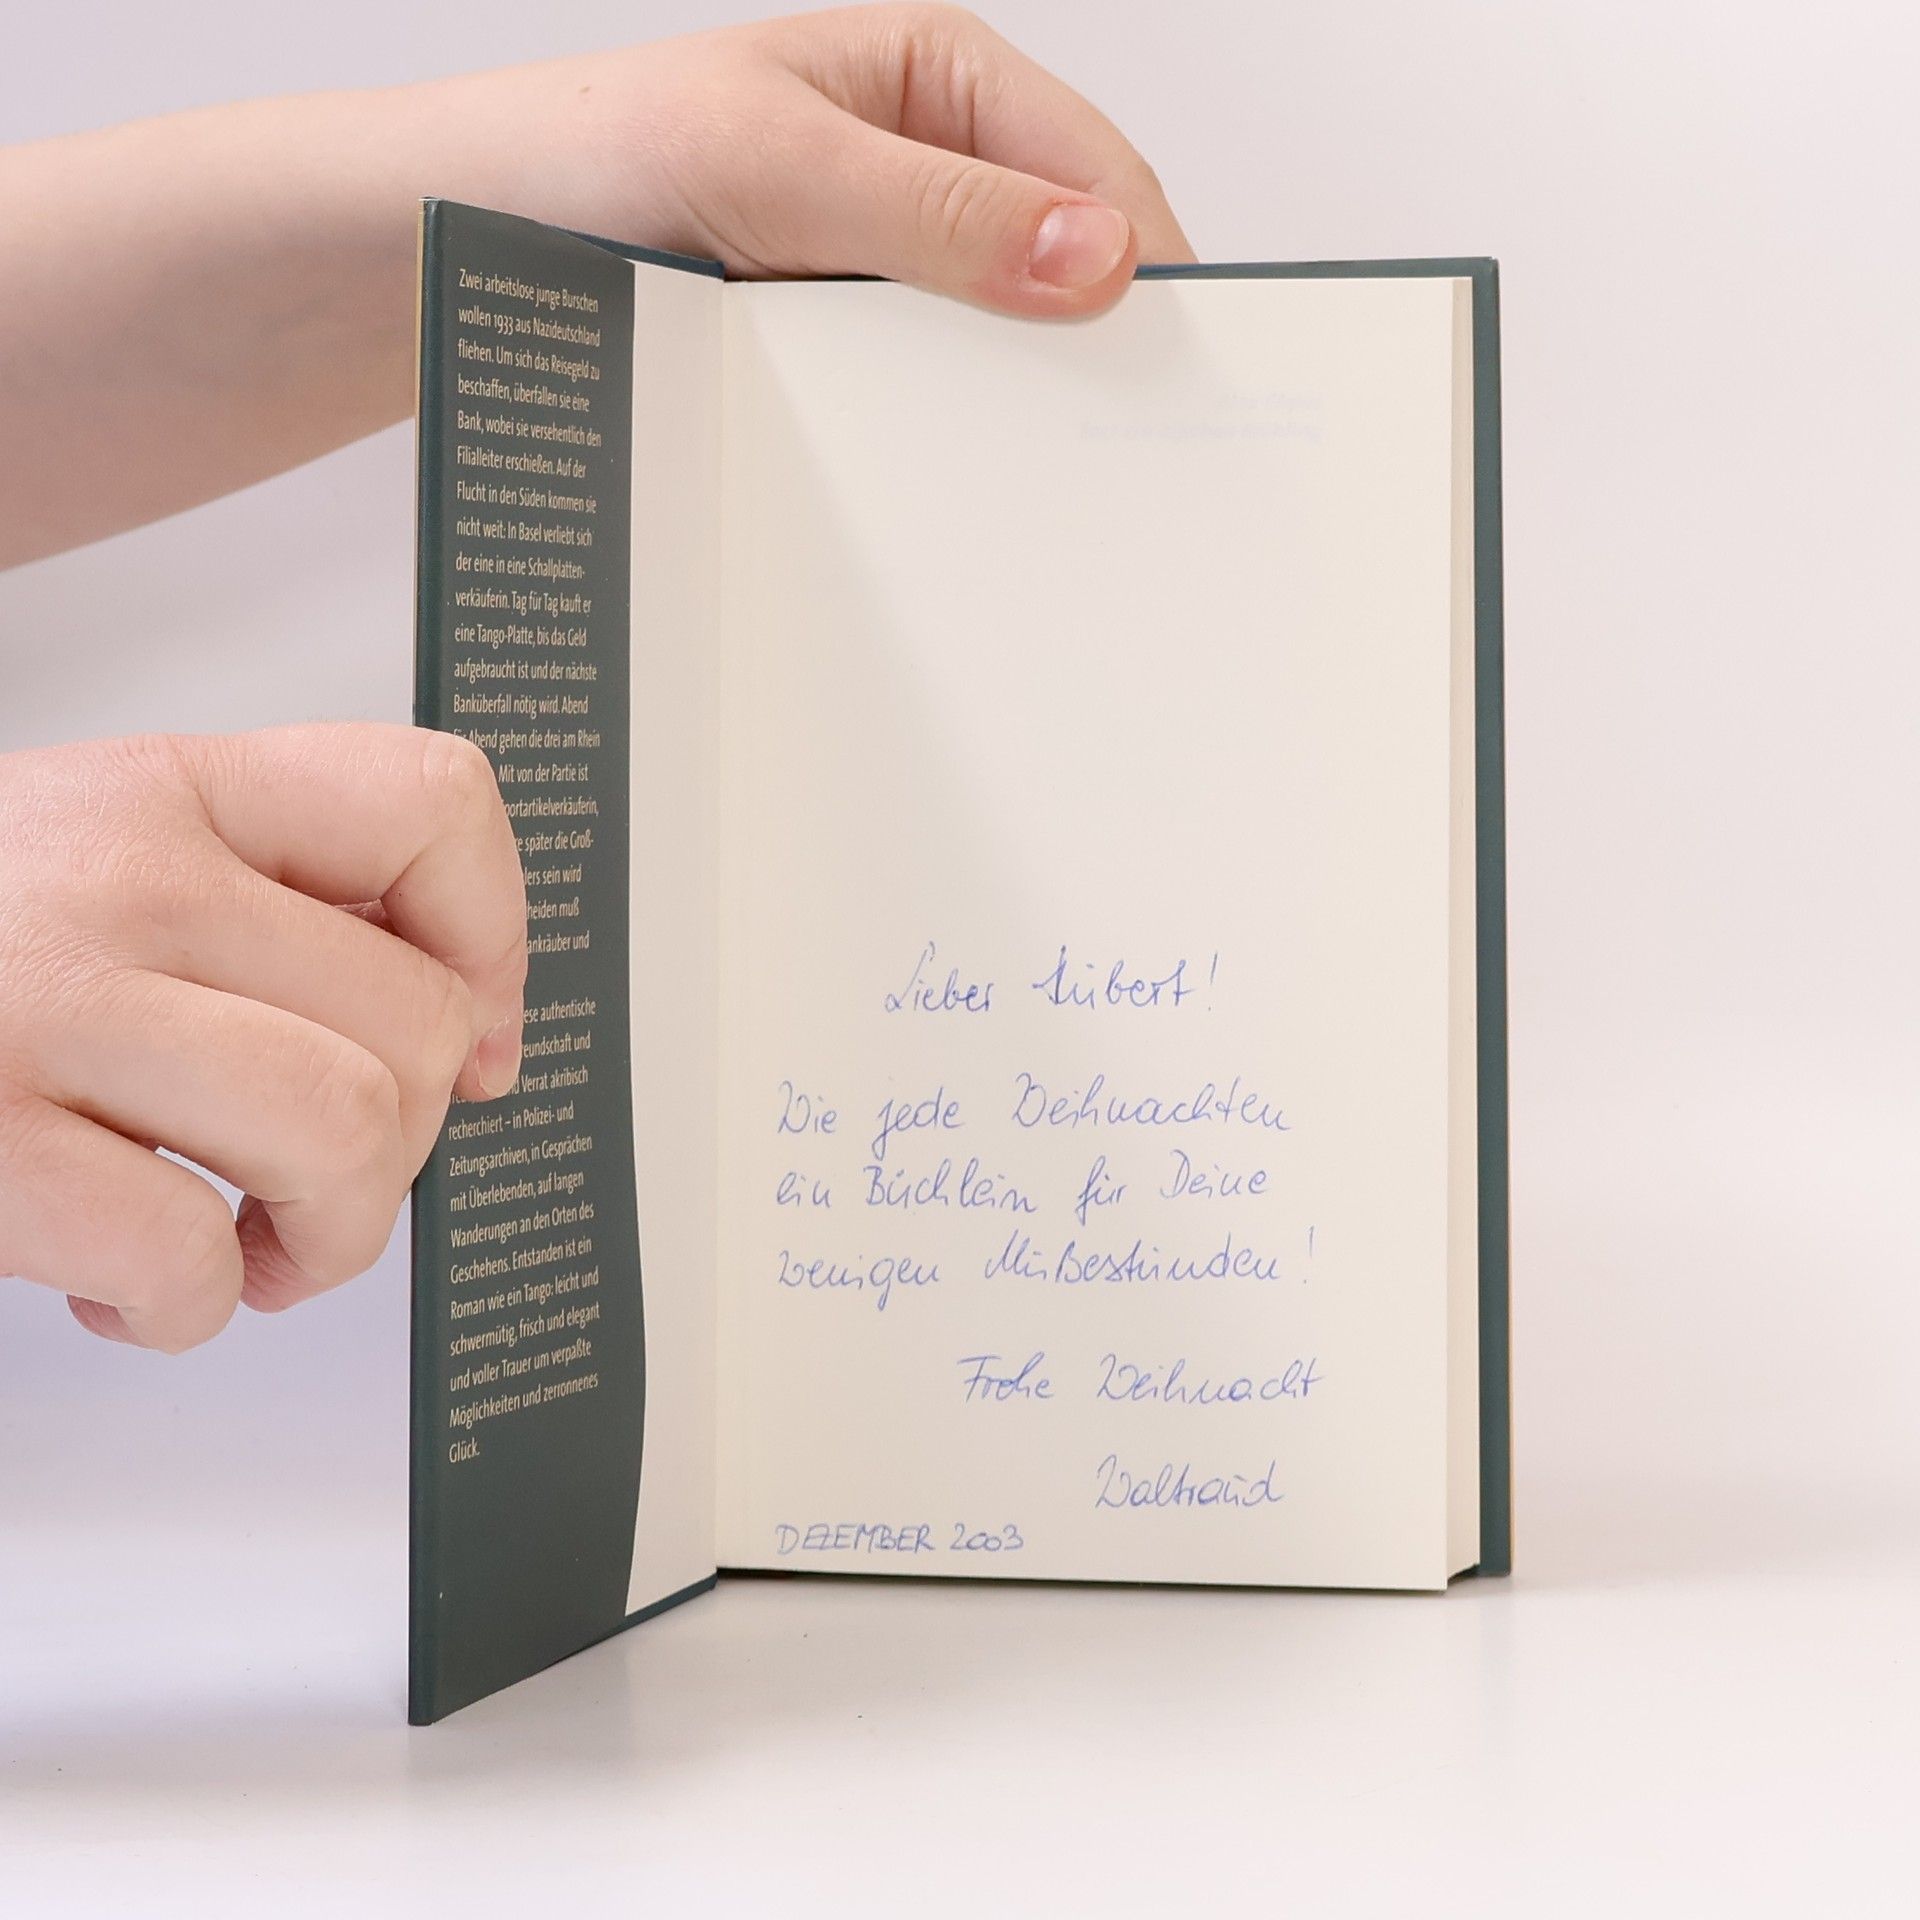 Zwei arbeitslose junge Burschen
wollen 1933 aus Nazideutschland
fliehen. Um sich das Reisegeld zu
beschaffen, überfallen sie eine
Bank, wobei sie versehentlich den
Filialleiter erschießen. Auf der
Flucht in den Süden kommen sie
nicht weit: In Basel verliebt sich
der eine in eine Schallplatten-
verkäuferin. Tag für Tag kauft er
eine Tango-Platte, bis das Geld
aufgebraucht ist und der nächste
Banküberfall nötig wird. Abend
für Abend gehen die drei am Rhein
Mit von der Partie ist
portartikelverkäuferin,
re später die Groß-
lers sein wird
heiden muß
ankräuber und
ese authentische
reundschaft und
d Verrat akribisch
recherchiert – in Polizei- und
Zeitungsarchiven, in Gesprächen
mit Überlebenden, auf langen
Wanderungen an den Orten des
Geschehens. Entstanden ist ein
Roman wie ein Tango: leicht und
schwermütig, frisch und elegant
und voller Trauer um verpaßte
Möglichkeiten und zerronnenes
Glück.
Lieber Hubert!
Wie jede Weihnachten
ein Büchlein für Deine
wenigen Mußestunden!
Frohe Weihnacht
Waltraud
DEZEMBER 2003